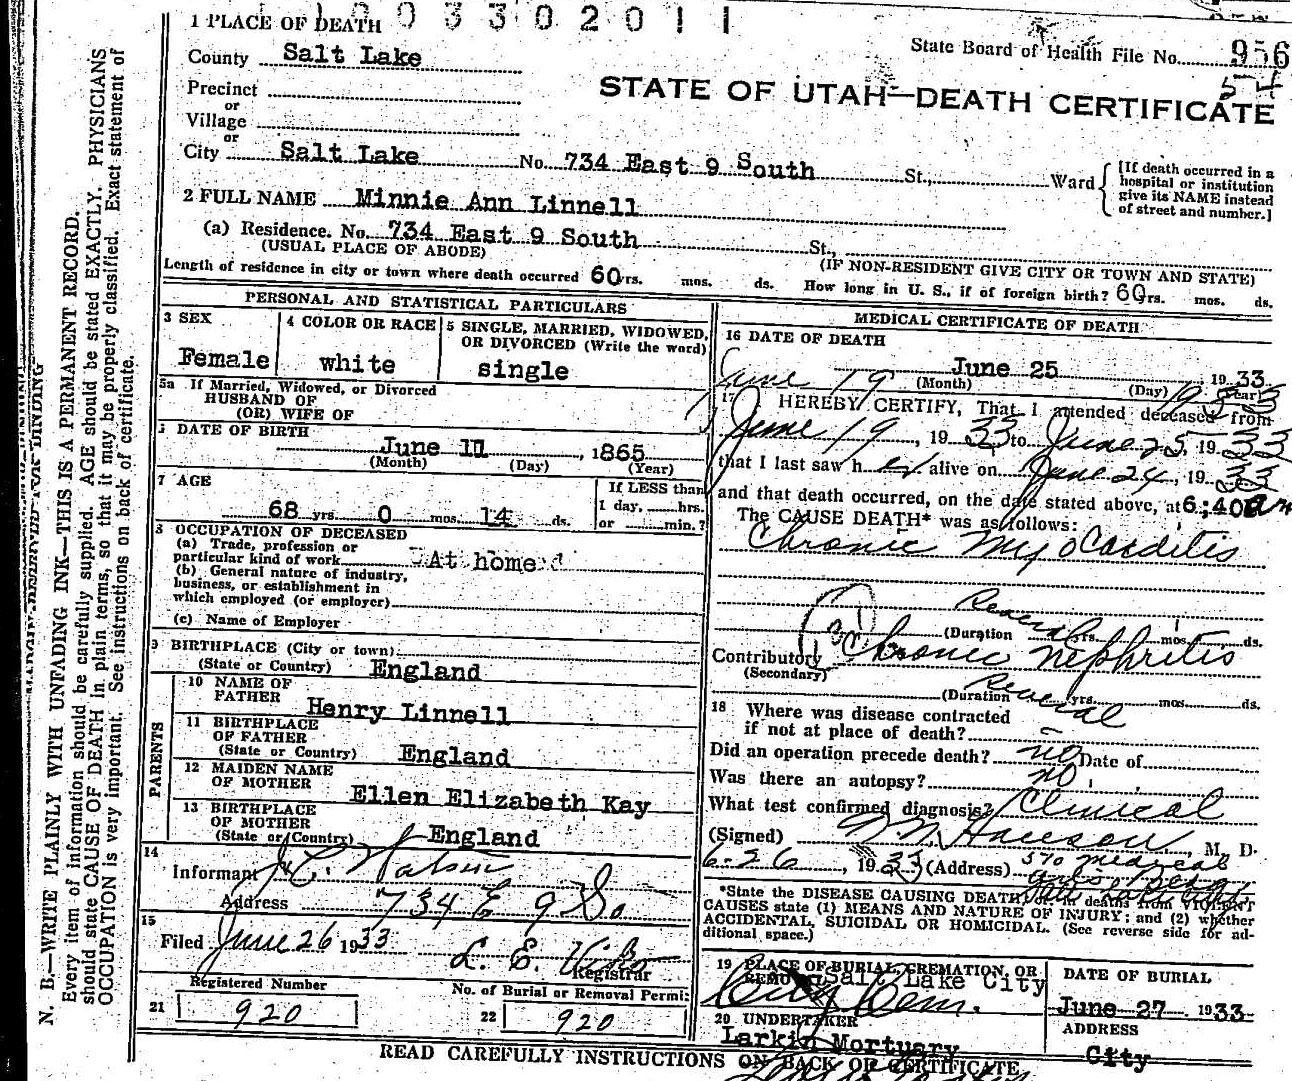 1 0 0 3 3 0 2 0 1 1
1 PLACE OF DEATH
State Board of Health File No. 956
County Salt Lake
54
STATE OF UTAH—DEATH CERTIFICATE
Precinct
or
Village
or
City Salt Lake No. 734 East 9 South St., Ward
[If death occurred in a
hospital or institution
give its NAME instead
of street and number.]
2 FULL NAME Minnie Ann Linnell
(a) Residence. No. 734 East 9 South St.,
(USUAL PLACE OF ABODE)
(IF NON-RESIDENT GIVE CITY OR TOWN AND STATE)
Length of residence in city or town where death occurred 60 yrs. mos. ds. How long in U. S., if of foreign birth? 60 yrs. mos. ds.
PERSONAL AND STATISTICAL PARTICULARS
3 SEX
Female
4 COLOR OR RACE
white
5 SINGLE, MARRIED, WIDOWED,
OR DIVORCED (Write the word)
single
5a If Married, Widowed, or Divorced
HUSBAND OF
(OR) WIFE OF
DATE OF BIRTH
June 11, 1865
(Month) (Day) (Year)
7 AGE
68 yrs. 0 mos. 14 ds.
If LESS than
1 day, hrs.
or min.?
8 OCCUPATION OF DECEASED
(a) Trade, profession or
particular kind of work At home
(b) General nature of industry,
business, or establishment in
which employed (or employer)
(c) Name of Employer
9 BIRTHPLACE (City or town)
(State or Country) England
PARENTS
10 NAME OF
FATHER Henry Linnell
11 BIRTHPLACE
OF FATHER
(State or Country) England
12 MAIDEN NAME
OF MOTHER Ellen Elizabeth Kay
13 BIRTHPLACE
OF MOTHER
(State or Country) England
14
Informant J. C. Watson
Address 734 E 9 So
15
Filed June 26 1933 L. E.
Registrar
Registered Number
21 920
No. of Burial or Removal Permit
22 920
MEDICAL CERTIFICATE OF DEATH
16 DATE OF DEATH
June 25 1933
(Month) (Day) (Year)
June 19 1933
17 I HEREBY CERTIFY, That I attended deceased from
June 19, 1933 to June 25, 1933
that I last saw her alive on June 24, 1933
and that death occurred, on the date stated above, at 6:40 am
The CAUSE DEATH* was as follows:
Chronic Myocarditis
(Duration Several yrs. mos. ds.
Contributory Chronic nephritis
(Secondary)
(Duration Several yrs. mos. ds.
18 Where was disease contracted
if not at place of death?
Did an operation precede death? no Date of
Was there an autopsy? no
What test confirmed diagnosis? Clinical
(Signed) Hanson, M. D.
6-26, 1933 (Address) 570 Medical
Arts Bldg
Salt Lake City
*State the DISEASE CAUSING DEATH, or in deaths from VIOLENT
CAUSES state (1) MEANS AND NATURE OF INJURY; and (2) whether
ACCIDENTAL, SUICIDAL OR HOMICIDAL. (See reverse side for ad-
ditional space.)
19 PLACE OF BURIAL, CREMATION, OR
REMOVAL Salt Lake City
City Cem.
DATE OF BURIAL
June 27 1933
20 UNDERTAKER
Larkin Mortuary
ADDRESS
City
READ CAREFULLY INSTRUCTIONS ON BACK OF CERTIFICATE
N. B.—WRITE PLAINLY WITH UNFADING INK—THIS IS A PERMANENT RECORD.
Every item of information should be carefully supplied. AGE should be stated EXACTLY. PHYSICIANS
should state CAUSE OF DEATH in plain terms, so that it may be properly classified. Exact statement of
OCCUPATION is very important. See instructions on back of certificate.